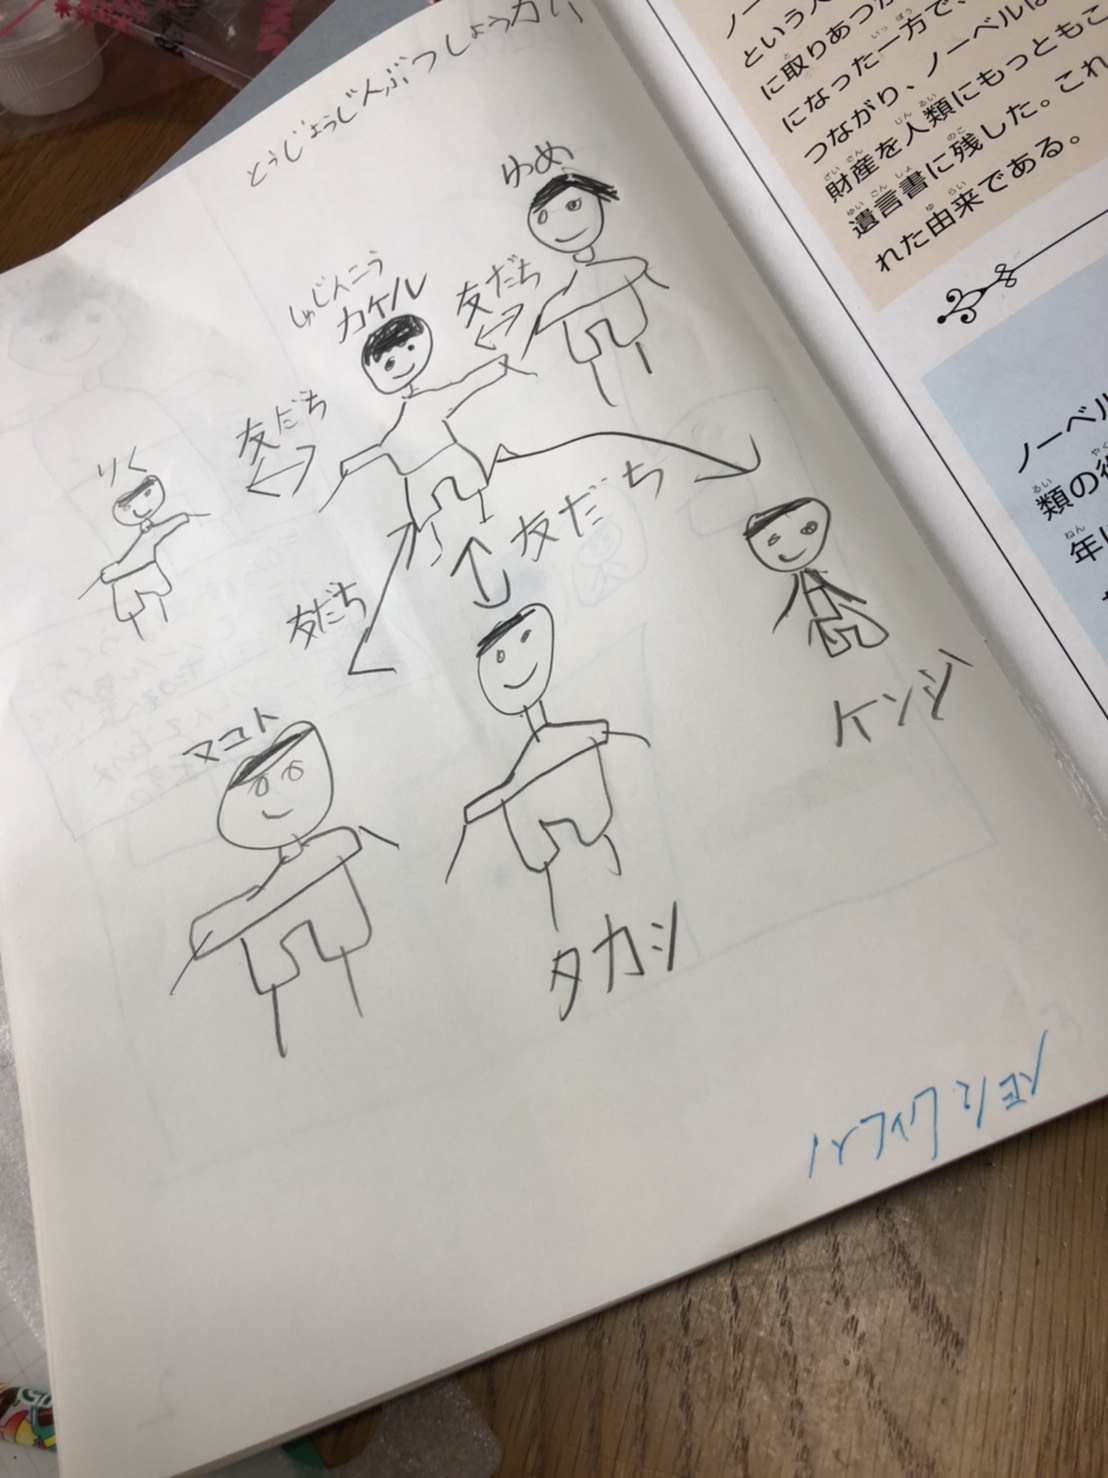 とうじょうじんぶつしょうかい
ゆめ
しゅじんこう
カケル
友だち
友だち
りく
友だち
友だち
マコト
ケンジ
タカシ
ノー
という人
に取りあつか
になった一方で、
つながり、ノーベルは
財産を人類にもっともこ
遺言書に残した。これ
れた由来である。
ノーベル
類の
年